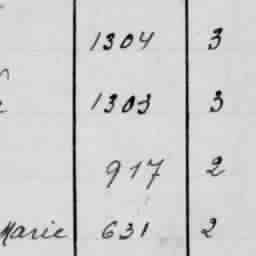 1304 3
1303 3
917 2
Marie 631 2